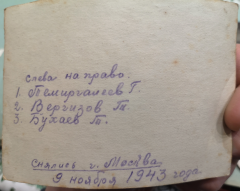 слева на право.
1. Темиргалеов Г.
2. Вергизов Т.
3. Бухаев Т.
Снялись г. Москва.
9 ноября 1943 года.